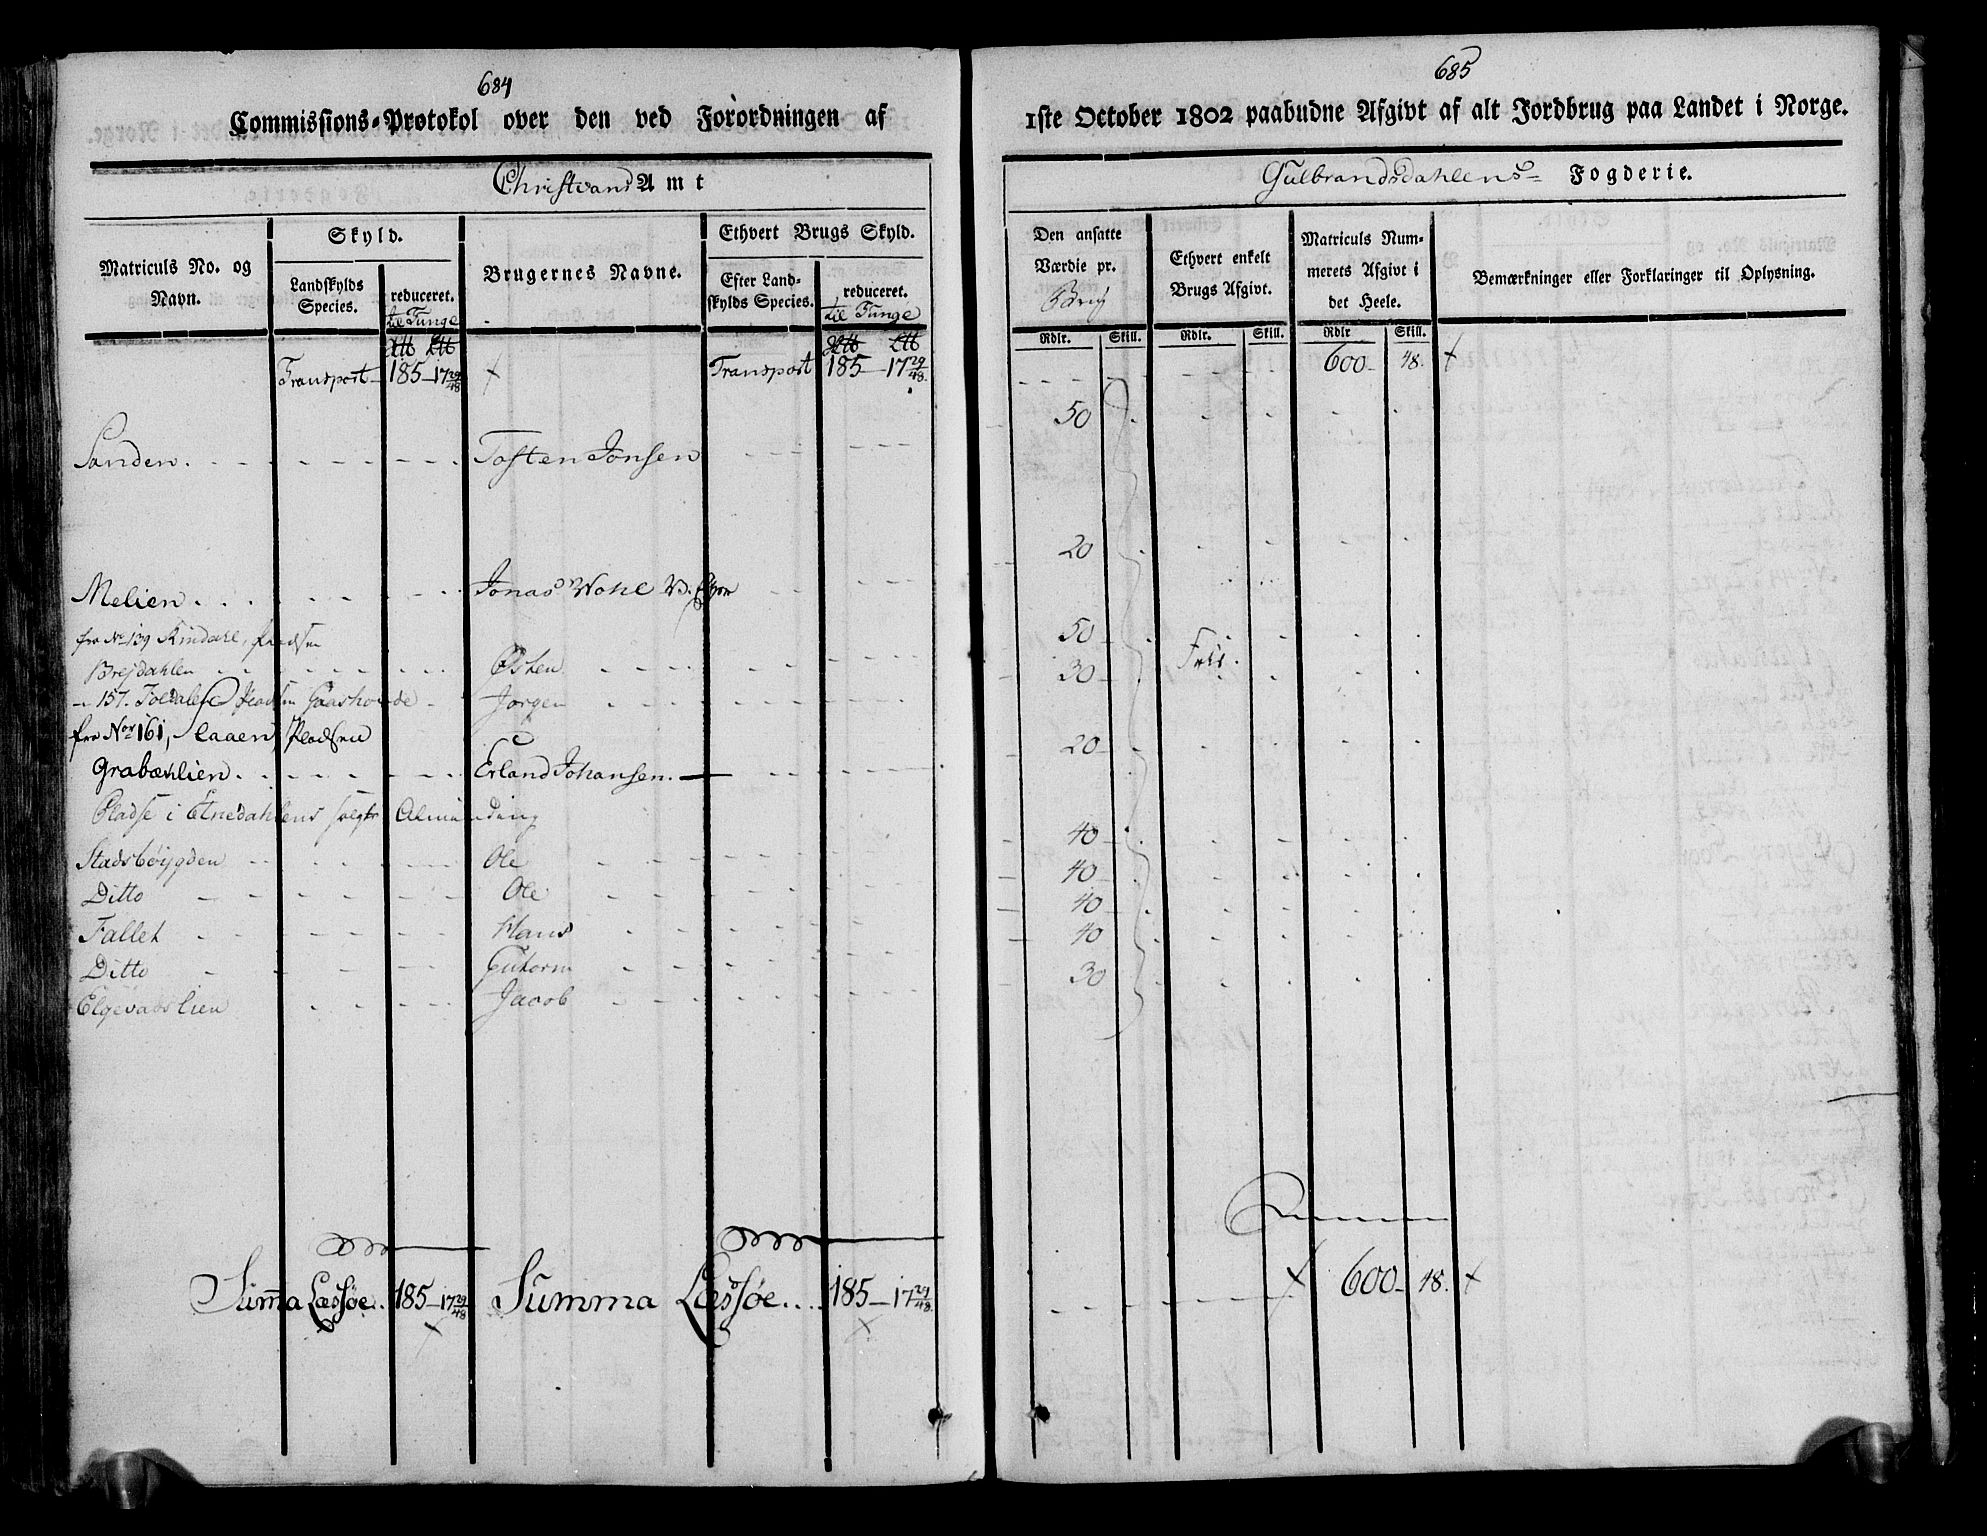 684
Commissions-Protokol over den ved Forordningen af
Christians Amt
Matriculs No. og Navn.
Skyld.
Landskylds Species.
reduceret.
til Tunge
Brugernes Navne.
Ethvert Brugs Skyld.
Efter Land-
skylds Species.
reduceret.
til Tunge
Transport 185 17 29/48 Transport 185 17 29/48
Sanden. Tosten Jonsen
Melien Jonas
fra No 139 Kindahl, Pladsen
Brejdahlen Østen
157. Pladsen Jørgen
fra No 161, Slaaen, Pladsen
Grabæhlien Erland Johansen.
Pladse i Almünding
Stadsbøygden Ole
Ditto Ole
Fallet Hans
Ditto Gutorm
Jacob
Summa Læssøe. 185 17 29/48 Summa Læssøe. 185 17 29/48
685
1ste October 1802 paabudne Afgivt af alt Jordbrug paa Landet i Norge.
Gülbrandsdahlens Fogderie.
Den ansatte
Værdie pr.
Brug
Ethvert enkelt
Brugs Afgivt.
Matriculs Num-
merets Afgivt i
det Heele.
Bemærkninger eller Forklaringer til Oplysning.
Rdlr. Skill. Rdlr. Skill. Rdlr Skill.
600 48.
50
20
50
30 Frie.
20
40
40
40
40
30
600 48.